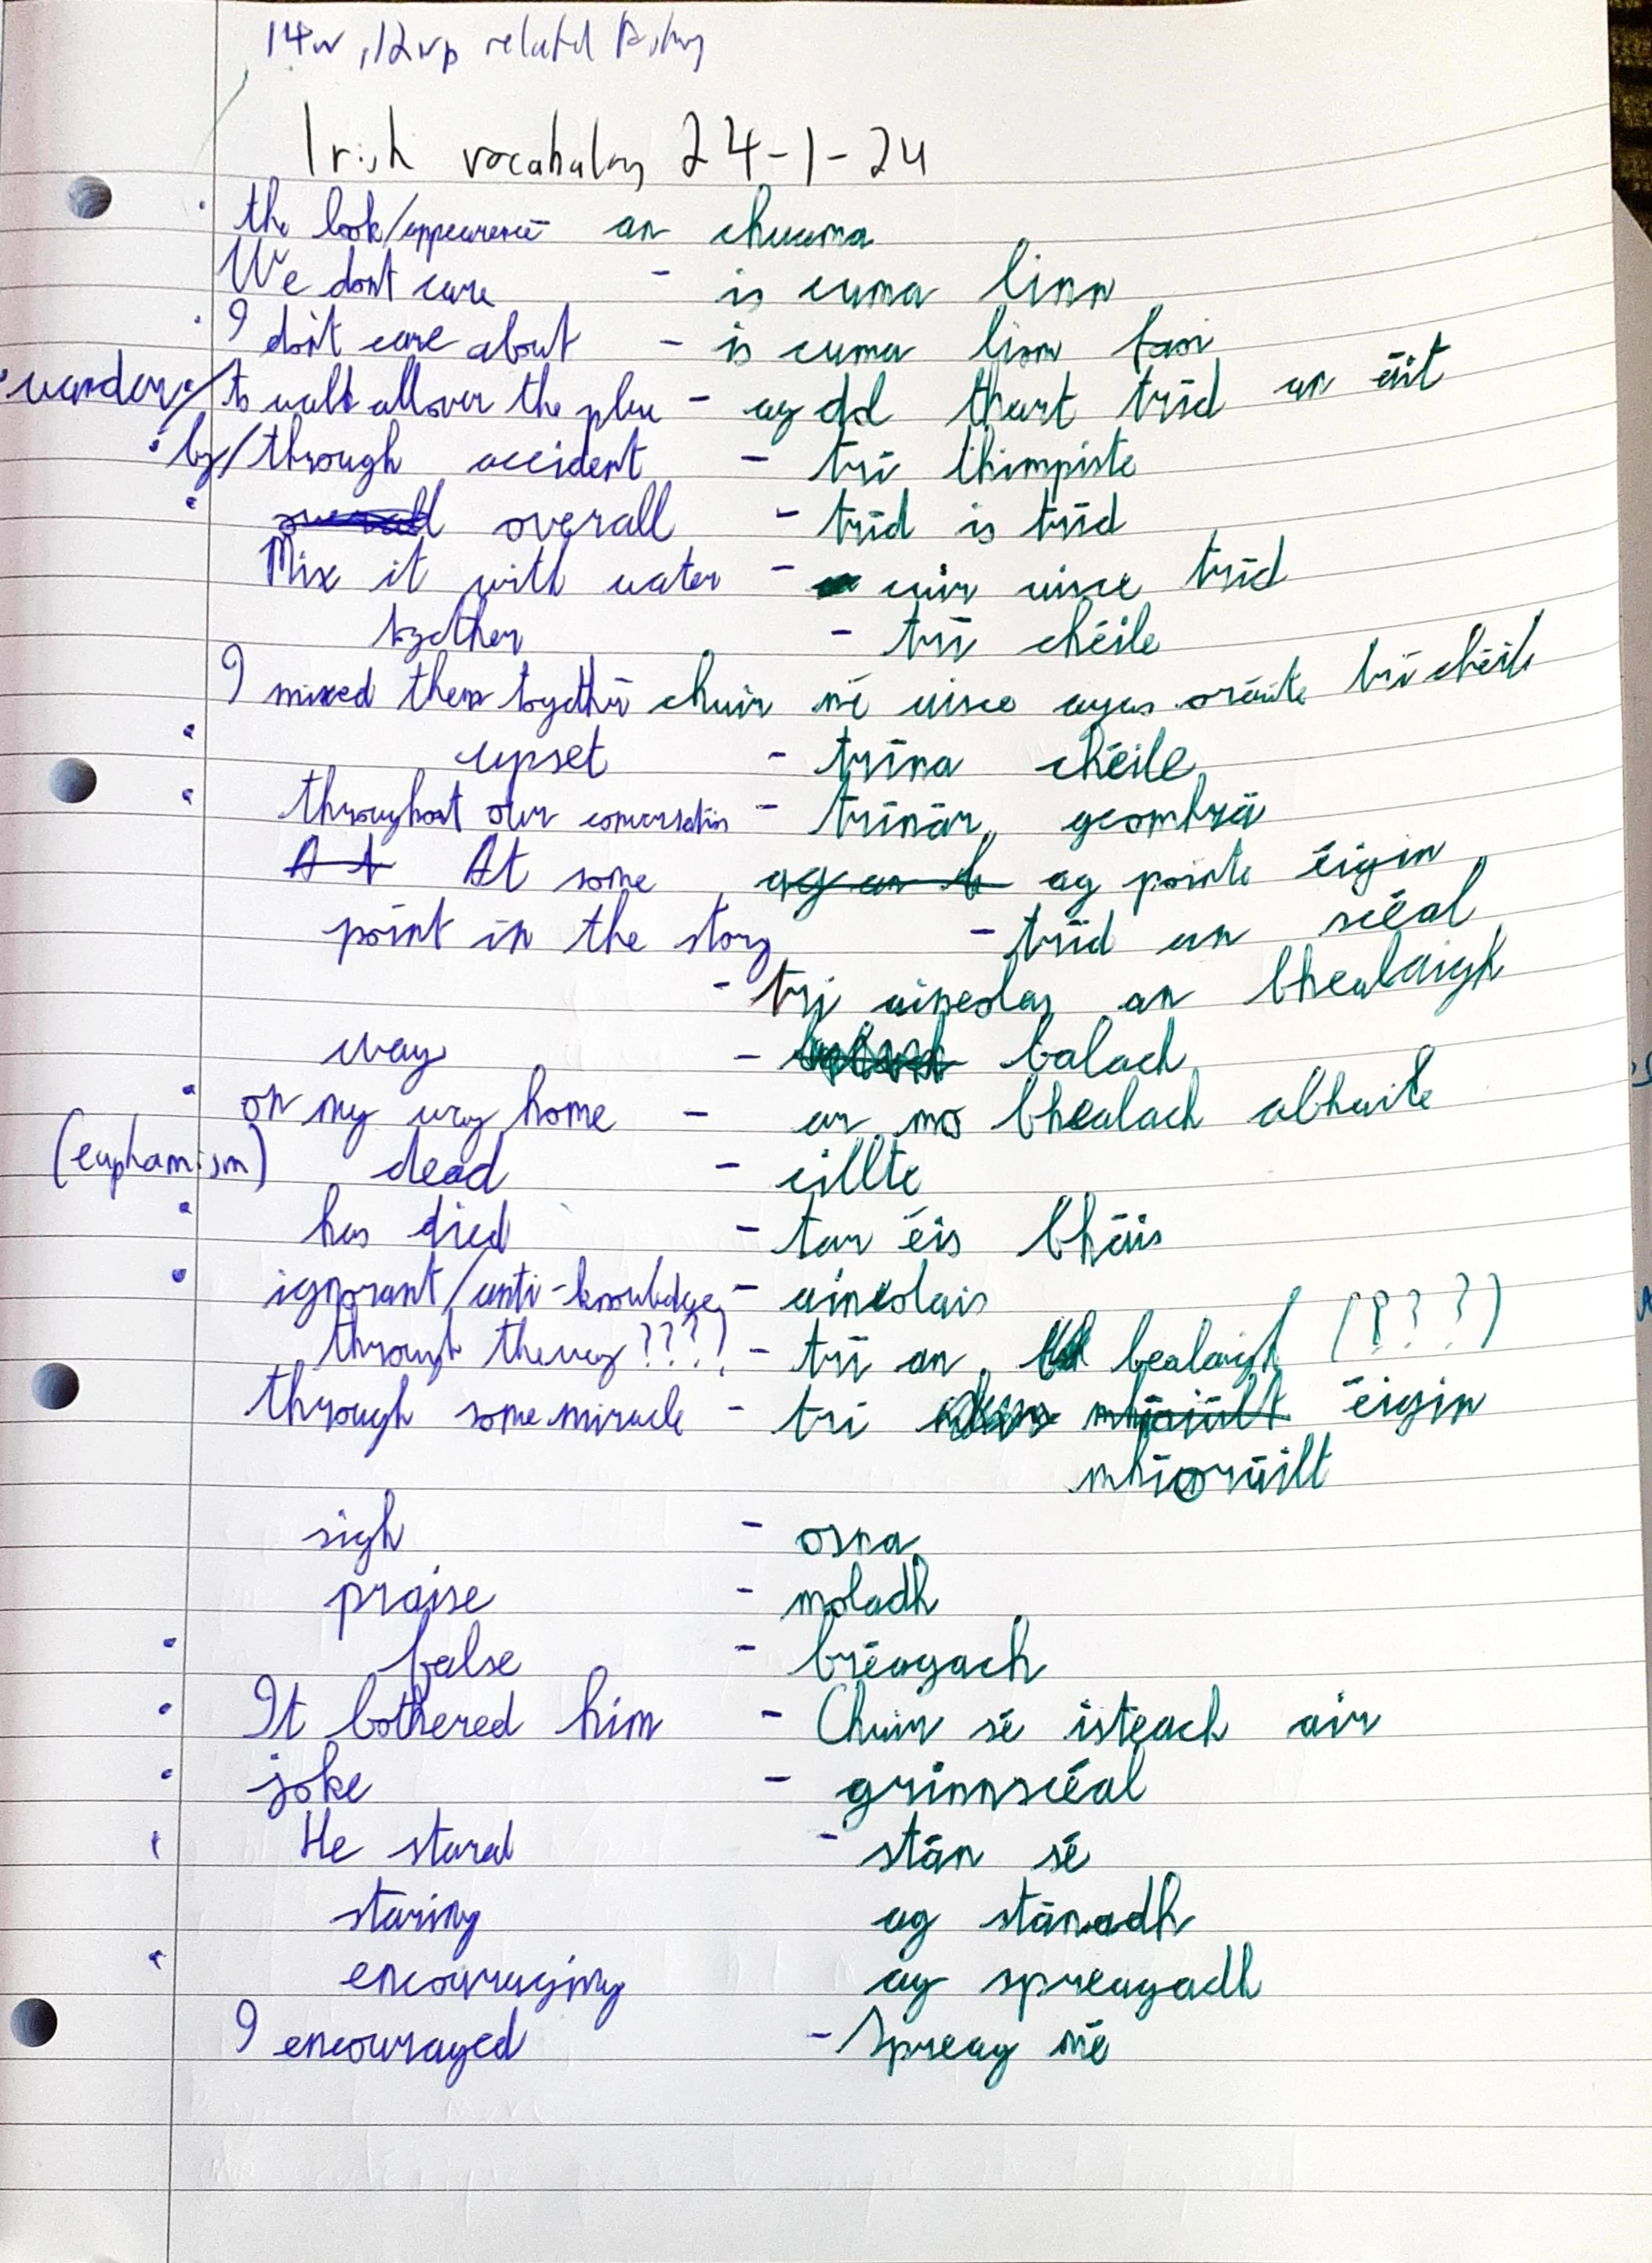 14w, 12vp related
Irish vocabulary 24-1-24
the look/appearence an chuuma
We dont care - is cuma linn
I don't care about - is cuma liom faoi
wander/to walk all over the place - ag dul thart tríd an áit
by/through accident - trí thimpiste
overall - tríd is tríd
Mix it with water - cuir uisce tríd
together - trí chéile
I mixed them together chuir mé uisce agus oráiste trí chéile
upset - trína chéile
throughout our conversation - trínár gcomhrá
At some ag pointe éigin
point in the story - tríd an scéal
- trí aineolas an bhealaigh
way - balach
on my way home - ar mo bhealach abhaile
(euphamism) dead - cillte
has died - tar éis bháis
ignorant/anti-knowledge - aineolais
through the way????? - trí an bealaigh (????)
through some miracle - trí éigin
mhíorúilt
sigh - osna
praise - moladh
false - bréagach
It bothered him - Chuir sé isteach air
joke - grinnscéal
He stared - stán sé
staring ag stánadh
encouraging ag spreagadh
I encouraged - Spreag mé